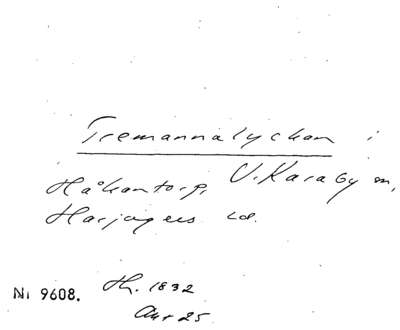 Tremannalyckan i
Håkantorp, V. Karaby sn,
Harjagers hd.
Nr 9608.
Th. 1832
Akt 25